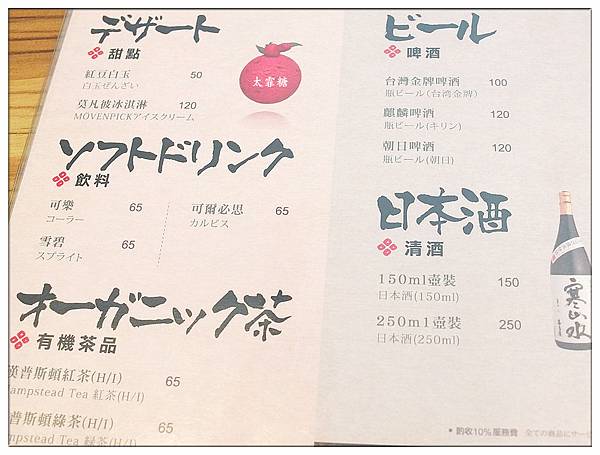 デザート
甜點
紅豆白玉 50
白玉ぜんざい
莫凡彼冰淇淋 120
MÖVENPICKアイスクリーム
太靠糖
ソフトドリンク
飲料
可樂 65
コーラー
可爾必思 65
カルピス
雪碧 65
スプライト
オーガニック茶
有機茶品
漢普斯頓紅茶(H/I) 65
ampstead Tea 紅茶(H/I)
普斯頓綠茶(H/I) 65
mpstead Tea 緑茶(H/I)
ビール
啤酒
台灣金牌啤酒 100
瓶ビール(台湾金牌)
麒麟啤酒 120
瓶ビール(キリン)
朝日啤酒 120
瓶ビール(朝日)
日本酒
清酒
150ml壺裝 150
日本酒(150ml)
250ml壺裝 250
日本酒(250ml)
寒山水
* 酌收10%服務費 全ての商品にサー